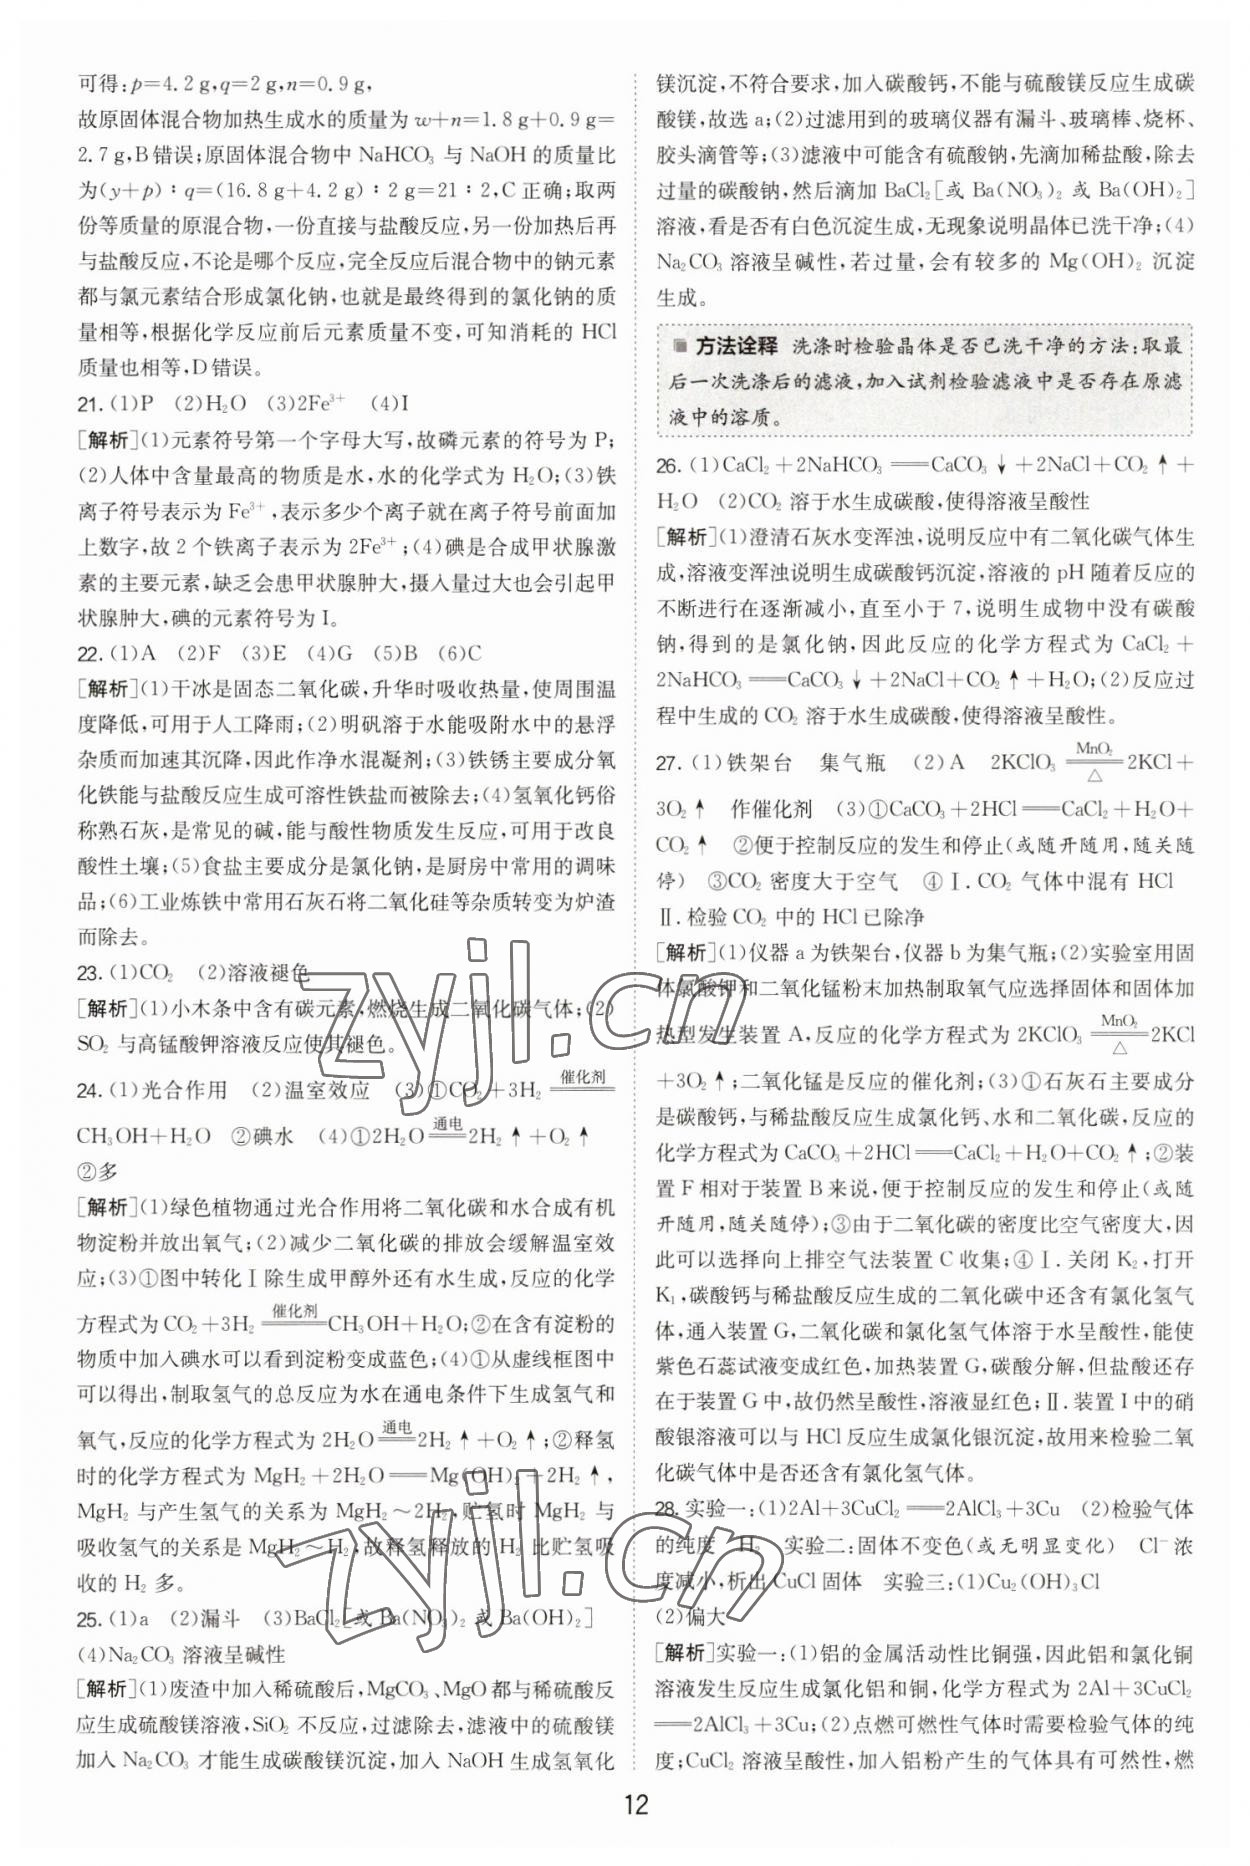 可得:p=4.2 g,q=2 g,n=0.9 g,
故原固体混合物加热生成水的质量为 w+n=1.8 g+0.9 g=
2.7 g,B错误;原固体混合物中 NaHCO₃ 与 NaOH 的质量比
为(y+p)∶q=(16.8 g+4.2 g)∶2 g=21∶2,C 正确;取两
份等质量的原混合物,一份直接与盐酸反应,另一份加热后再
与盐酸反应,不论是哪个反应,完全反应后混合物中的钠元素
都与氯元素结合形成氯化钠,也就是最终得到的氯化钠的质
量相等,根据化学反应前后元素质量不变,可知消耗的 HCl
质量也相等,D 错误。
21. (1)P (2)H₂O (3)2Fe³⁺ (4)I
[解析](1)元素符号第一个字母大写,故磷元素的符号为 P;
(2)人体中含量最高的物质是水,水的化学式为 H₂O;(3)铁
离子符号表示为 Fe³⁺,表示多少个离子就在离子符号前面加
上数字,故 2 个铁离子表示为 2Fe³⁺;(4)碘是合成甲状腺激
素的主要元素,缺乏会患甲状腺肿大,摄入量过大也会引起甲
状腺肿大,碘的元素符号为 I。
22. (1)A (2)F (3)E (4)G (5)B (6)C
[解析](1)干冰是固态二氧化碳,升华时吸收热量,使周围温
度降低,可用于人工降雨;(2)明矾溶于水能吸附水中的悬浮
杂质而加速其沉降,因此作净水混凝剂;(3)铁锈主要成分氧
化铁能与盐酸反应生成可溶性铁盐而被除去;(4)氢氧化钙俗
称熟石灰,是常见的碱,能与酸性物质发生反应,可用于改良
酸性土壤;(5)食盐主要成分是氯化钠,是厨房中常用的调味
品;(6)工业炼铁中常用石灰石将二氧化硅等杂质转变为炉渣
而除去。
23. (1)CO₂ (2)溶液褪色
[解析](1)小木条中含有碳元素,燃烧生成二氧化碳气体;(2)
SO₂ 与高锰酸钾溶液反应使其褪色。
24. (1)光合作用 (2)温室效应 (3)①CO₂+3H₂ ══催化剂══
CH₃OH+H₂O ②碘水 (4)①2H₂O ══通电══ 2H₂↑+O₂↑
②多
[解析](1)绿色植物通过光合作用将二氧化碳和水合成有机
物淀粉并放出氧气;(2)减少二氧化碳的排放会缓解温室效
应;(3)①图中转化Ⅰ除生成甲醇外还有水生成,反应的化学
方程式为 CO₂+3H₂ ══催化剂══ CH₃OH+H₂O;②在含有淀粉的
物质中加入碘水可以看到淀粉变成蓝色;(4)①从虚线框图中
可以得出,制取氢气的总反应为水在通电条件下生成氢气和
氧气,反应的化学方程式为 2H₂O ══通电══ 2H₂↑+O₂↑;②释氢
时的化学方程式为 MgH₂+2H₂O══Mg(OH)₂+2H₂↑,
MgH₂ 与产生氢气的关系为 MgH₂~2H₂,贮氢时 MgH₂ 与
吸收氢气的关系是 MgH₂~H₂,故释氢释放的 H₂ 比贮氢吸
收的 H₂ 多。
25. (1)a (2)漏斗 (3)BaCl₂[或 Ba(NO₃)₂ 或 Ba(OH)₂]
(4)Na₂CO₃ 溶液呈碱性
[解析](1)废渣中加入稀硫酸后,MgCO₃、MgO 都与稀硫酸反
应生成硫酸镁溶液,SiO₂ 不反应,过滤除去,滤液中的硫酸镁
加入 Na₂CO₃ 才能生成碳酸镁沉淀,加入 NaOH 生成氢氧化
镁沉淀,不符合要求,加入碳酸钙,不能与硫酸镁反应生成碳
酸镁,故选 a;(2)过滤用到的玻璃仪器有漏斗、玻璃棒、烧杯、
胶头滴管等;(3)滤液中可能含有硫酸钠,先滴加稀盐酸,除去
过量的碳酸钠,然后滴加 BaCl₂[或 Ba(NO₃)₂ 或 Ba(OH)₂]
溶液,看是否有白色沉淀生成,无现象说明晶体已洗干净;(4)
Na₂CO₃ 溶液呈碱性,若过量,会有较多的 Mg(OH)₂ 沉淀
生成。
方法诠释 洗涤时检验晶体是否已洗干净的方法:取最
后一次洗涤后的滤液,加入试剂检验滤液中是否存在原滤
液中的溶质。
26. (1)CaCl₂+2NaHCO₃══CaCO₃↓+2NaCl+CO₂↑+
H₂O (2)CO₂ 溶于水生成碳酸,使得溶液呈酸性
[解析](1)澄清石灰水变浑浊,说明反应中有二氧化碳气体生
成,溶液变浑浊说明生成碳酸钙沉淀,溶液的 pH 随着反应的
不断进行在逐渐减小,直至小于 7,说明生成物中没有碳酸
钠,得到的是氯化钠,因此反应的化学方程式为 CaCl₂+
2NaHCO₃══CaCO₃↓+2NaCl+CO₂↑+H₂O;(2)反应过
程中生成的 CO₂ 溶于水生成碳酸,使得溶液呈酸性。
27. (1)铁架台 集气瓶 (2)A 2KClO₃ ══MnO₂/△══ 2KCl+
3O₂↑ 作催化剂 (3)①CaCO₃+2HCl══CaCl₂+H₂O+
CO₂↑ ②便于控制反应的发生和停止(或随开随用,随关随
停) ③CO₂ 密度大于空气 ④Ⅰ.CO₂ 气体中混有 HCl
Ⅱ.检验 CO₂ 中的 HCl 已除净
[解析](1)仪器 a 为铁架台,仪器 b 为集气瓶;(2)实验室用固
体氯酸钾和二氧化锰粉末加热制取氧气应选择固体和固体加
热型发生装置 A,反应的化学方程式为 2KClO₃ ══MnO₂/△══ 2KCl
+3O₂↑;二氧化锰是反应的催化剂;(3)①石灰石主要成分
是碳酸钙,与稀盐酸反应生成氯化钙、水和二氧化碳,反应的
化学方程式为 CaCO₃+2HCl══CaCl₂+H₂O+CO₂↑;②装
置 F 相对于装置 B 来说,便于控制反应的发生和停止(或随
开随用,随关随停);③由于二氧化碳的密度比空气密度大,因
此可以选择向上排空气法装置 C 收集;④Ⅰ.关闭 K₂,打开
K₁,碳酸钙与稀盐酸反应生成的二氧化碳中还含有氯化氢气
体,通入装置 G,二氧化碳和氯化氢气体溶于水呈酸性,能使
紫色石蕊试液变成红色,加热装置 G,碳酸分解,但盐酸还存
在于装置 G 中,故仍然呈酸性,溶液显红色;Ⅱ.装置 I 中的硝
酸银溶液可以与 HCl 反应生成氯化银沉淀,故用来检验二氧
化碳气体中是否还含有氯化氢气体。
28. 实验一:(1)2Al+3CuCl₂══2AlCl₃+3Cu (2)检验气体
的纯度 H₂ 实验二:固体不变色(或无明显变化) Cl⁻浓
度减小,析出 CuCl 固体 实验三:(1)Cu₂(OH)₃Cl
(2)偏大
[解析]实验一:(1)铝的金属活动性比铜强,因此铝和氯化铜
溶液发生反应生成氯化铝和铜,化学方程式为 2Al+3CuCl₂
══2AlCl₃+3Cu;(2)点燃可燃性气体时需要检验气体的纯
度;CuCl₂ 溶液呈酸性,加入铝粉产生的气体具有可燃性,燃
12
zyjl.cn
zyjl.cn